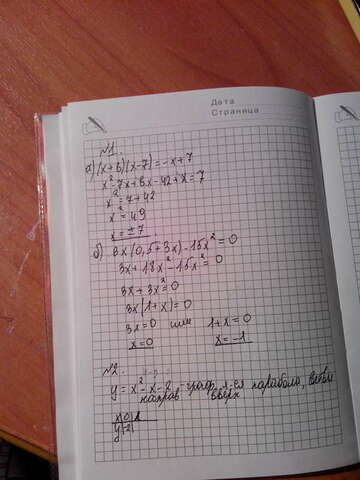 Дата
Страница
№1
а) (x+6)(x-7)=-x+7
x²-7x+6x-42+x=7
x²=7+42
x²=49
x=±7
б) 3x(0,5+3x)-15x²=0
3x+18x²-15x²=0
3x+3x²=0
3x(1+x)=0
3x=0 или 1+x=0
x=0 x=-1
№2.
y=x²-x-2 -граф. л-ся парабола, ветви
направ вверх
x|0|
y|-2|